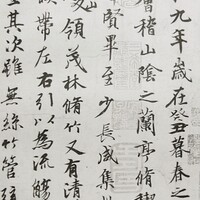 九年歲在癸丑暮春之
稽山陰之蘭亭脩稧
賢畢至少長咸集
山領茂林脩竹又有清
帶左右引以為流觴
其次雖無絲竹管弦